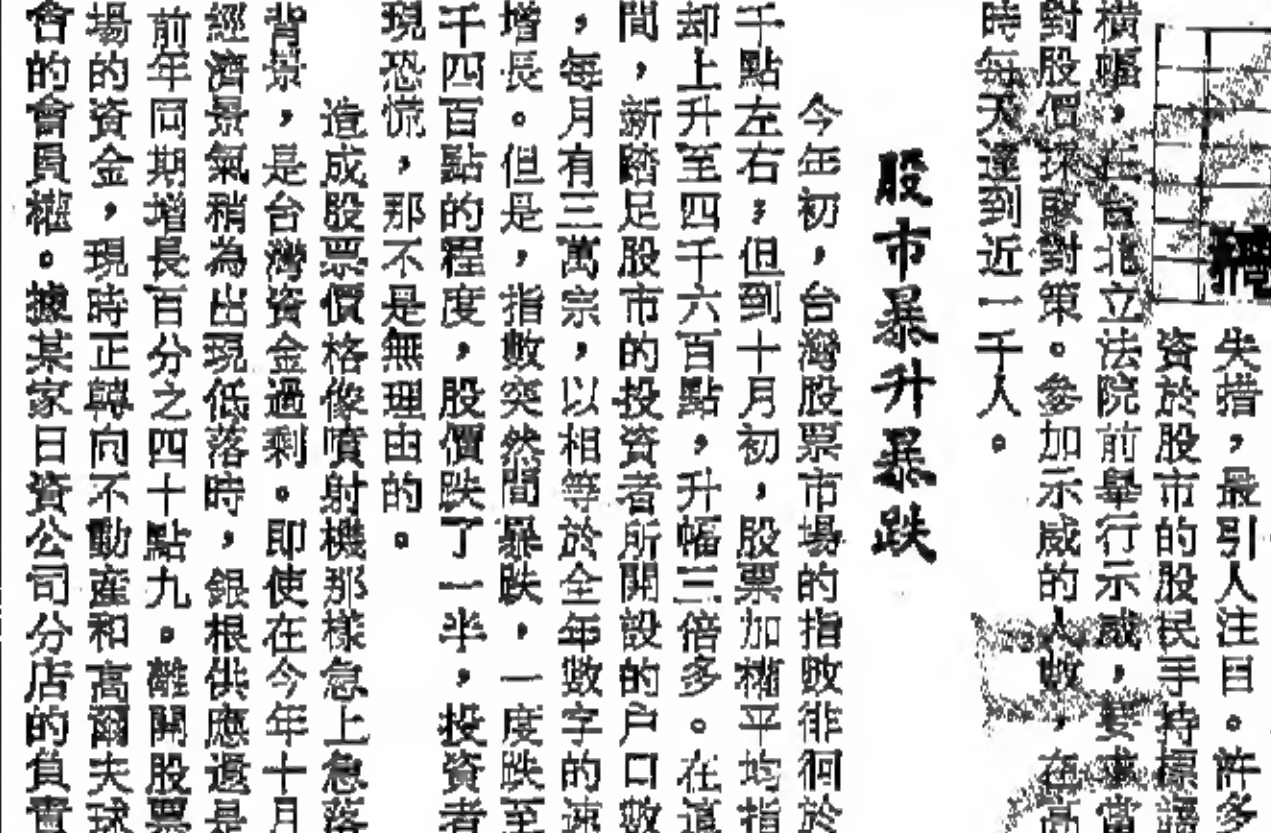 失措，最引人注目。許多
資於股市的股民手持標語
橫幅，在台北立法院前舉行示威，要求當
對股價採取對策。參加示威的人數，在高
時每天達到近一千人。
股市暴升暴跌
今年初，台灣股票市場的指數徘徊於
千點左右，但到十月初，股票加權平均指
却上升至四千六百點，升幅三倍多。在這
間，新踏足股市的投資者所開設的户口數
，每月有三萬宗，以相等於全年數字的速
增長。但是，指數突然間暴跌，一度跌至
千四百點的程度，股價跌了一半，投資者
現恐慌，那不是無理由的。
造成股票價格像噴射機那樣急上急落
背景，是台灣資金過剩。即使在今年十月
經濟景氣稍為出現低落時，銀根供應還是
前年同期增長百分之四十點九。離開股票
場的資金，現時正轉向不動產和高爾夫球
會的會員權。據某家日資公司分店的負責